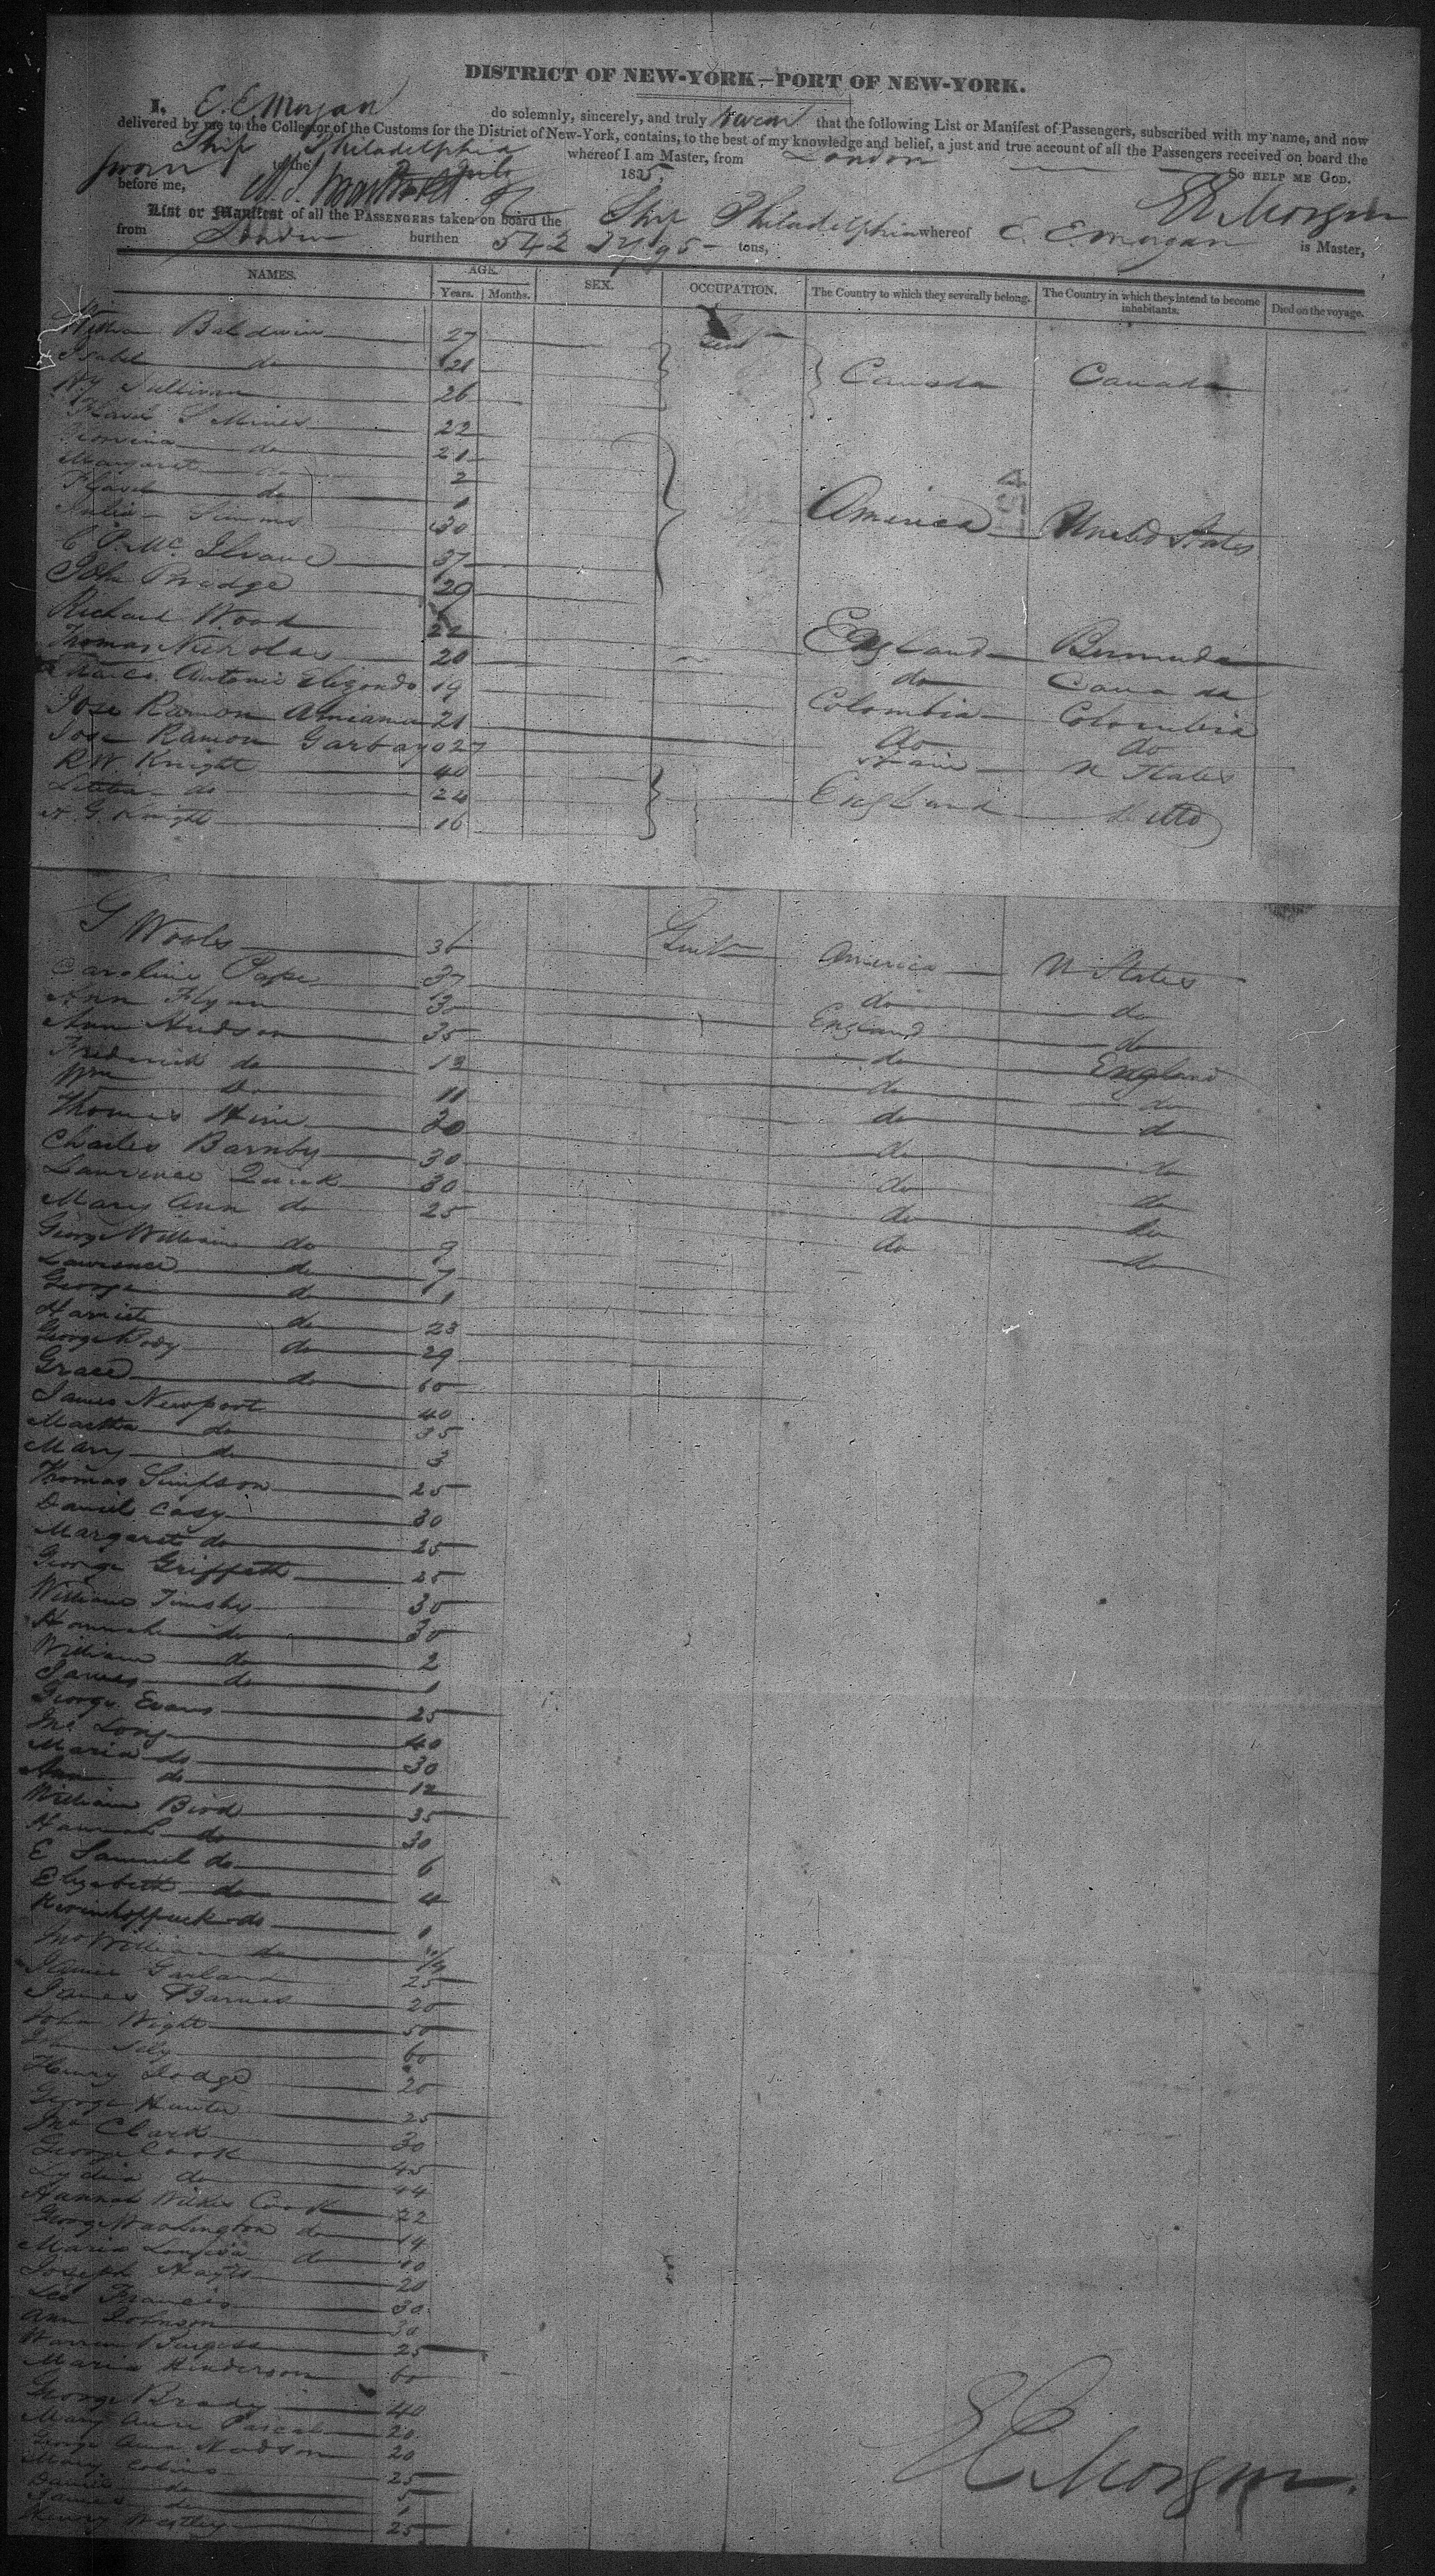 DISTRICT OF NEW-YORK—PORT OF NEW-YORK.
I, E. E Morgan do solemnly, sincerely, and truly swear that the following List or Manifest of Passengers, subscribed with my name, and now
delivered by me to the Collector of the Customs for the District of New-York, contains, to the best of my knowledge and belief, a just and true account of all the Passengers received on board the
Ship Philadelphia whereof I am Master, from London
Sworn to the 183 So HELP ME GOD.
before me, E E Morgan
List or Manifest of all the PASSENGERS taken on board the Ship Philadelphia whereof E. E. Morgan is Master,
from London burthen 542 tons,
NAMES. AGE. SEX. OCCUPATION. The Country to which they severally belong. The Country in which they intend to become inhabitants. Died on the voyage.
Years. Months.
William Baldwin 27
Isabel do 21
Sullivan 26 Canada Canada
22
do 21
Margaret do 2
do 1
Simms 30 America USA United States
C P. Mc Ilvane 37
John 29
Richard Wood 22 England Bermuda
Thomas Nicholas 20 do Canada
Antonio Elizondo 19 Colombia Colombia
Jose Ramon 21 do do
Jose Ramon Garbayo 27 U States
R W Knight 40
Letitia do 24 England ditto
G. Knight 16
G Woods 36 America U States
Caroline Pope 37 do do
Ann Flynn 30 England do
Ann Hudson 35 do England
Frederick do 13 do do
Wm do 11 do do
Thomas Hine 20 do do
Charles Barnby 30 do do
Lawrence Quick 30 do do
Mary Ann do 25 do do
George William do 9
Lawrence do 7
George do 1
Harriet do 23
George do 29
Grace do 60
James Newport 40
Martha do 35
Mary do 3
Thomas Simpson 25
Daniel Casy 30
Margaret do 25
George Griffeth 25
William Timsby 30
Hannah do 30
William do 2
James do 1
George Evans 25
Long 40
Maria do 30
Ann do 12
William Bird 35
Hannah do 30
E Samuel do 6
Elizabeth do 4
do 1
William do
Garland 25
James Barnes 20
John Wight 50
60
Henry Dodge 20
George Hunter 25
Clark 30
George Cook 45
Lydia do 44
Hannah Wilkes Cook 22
George Washington do 14
Maria Louisa do 10
Joseph 20
Francis 30
Ann Johnson 30
Warren Burgess 25
Maria Henderson 60
George Brady 40
Mary Anne Pascal 20
George Anna Hodson 20
Mary Collins 25
Daniel do 5
James do 1
Henry Wastley 25
E E Morgan.